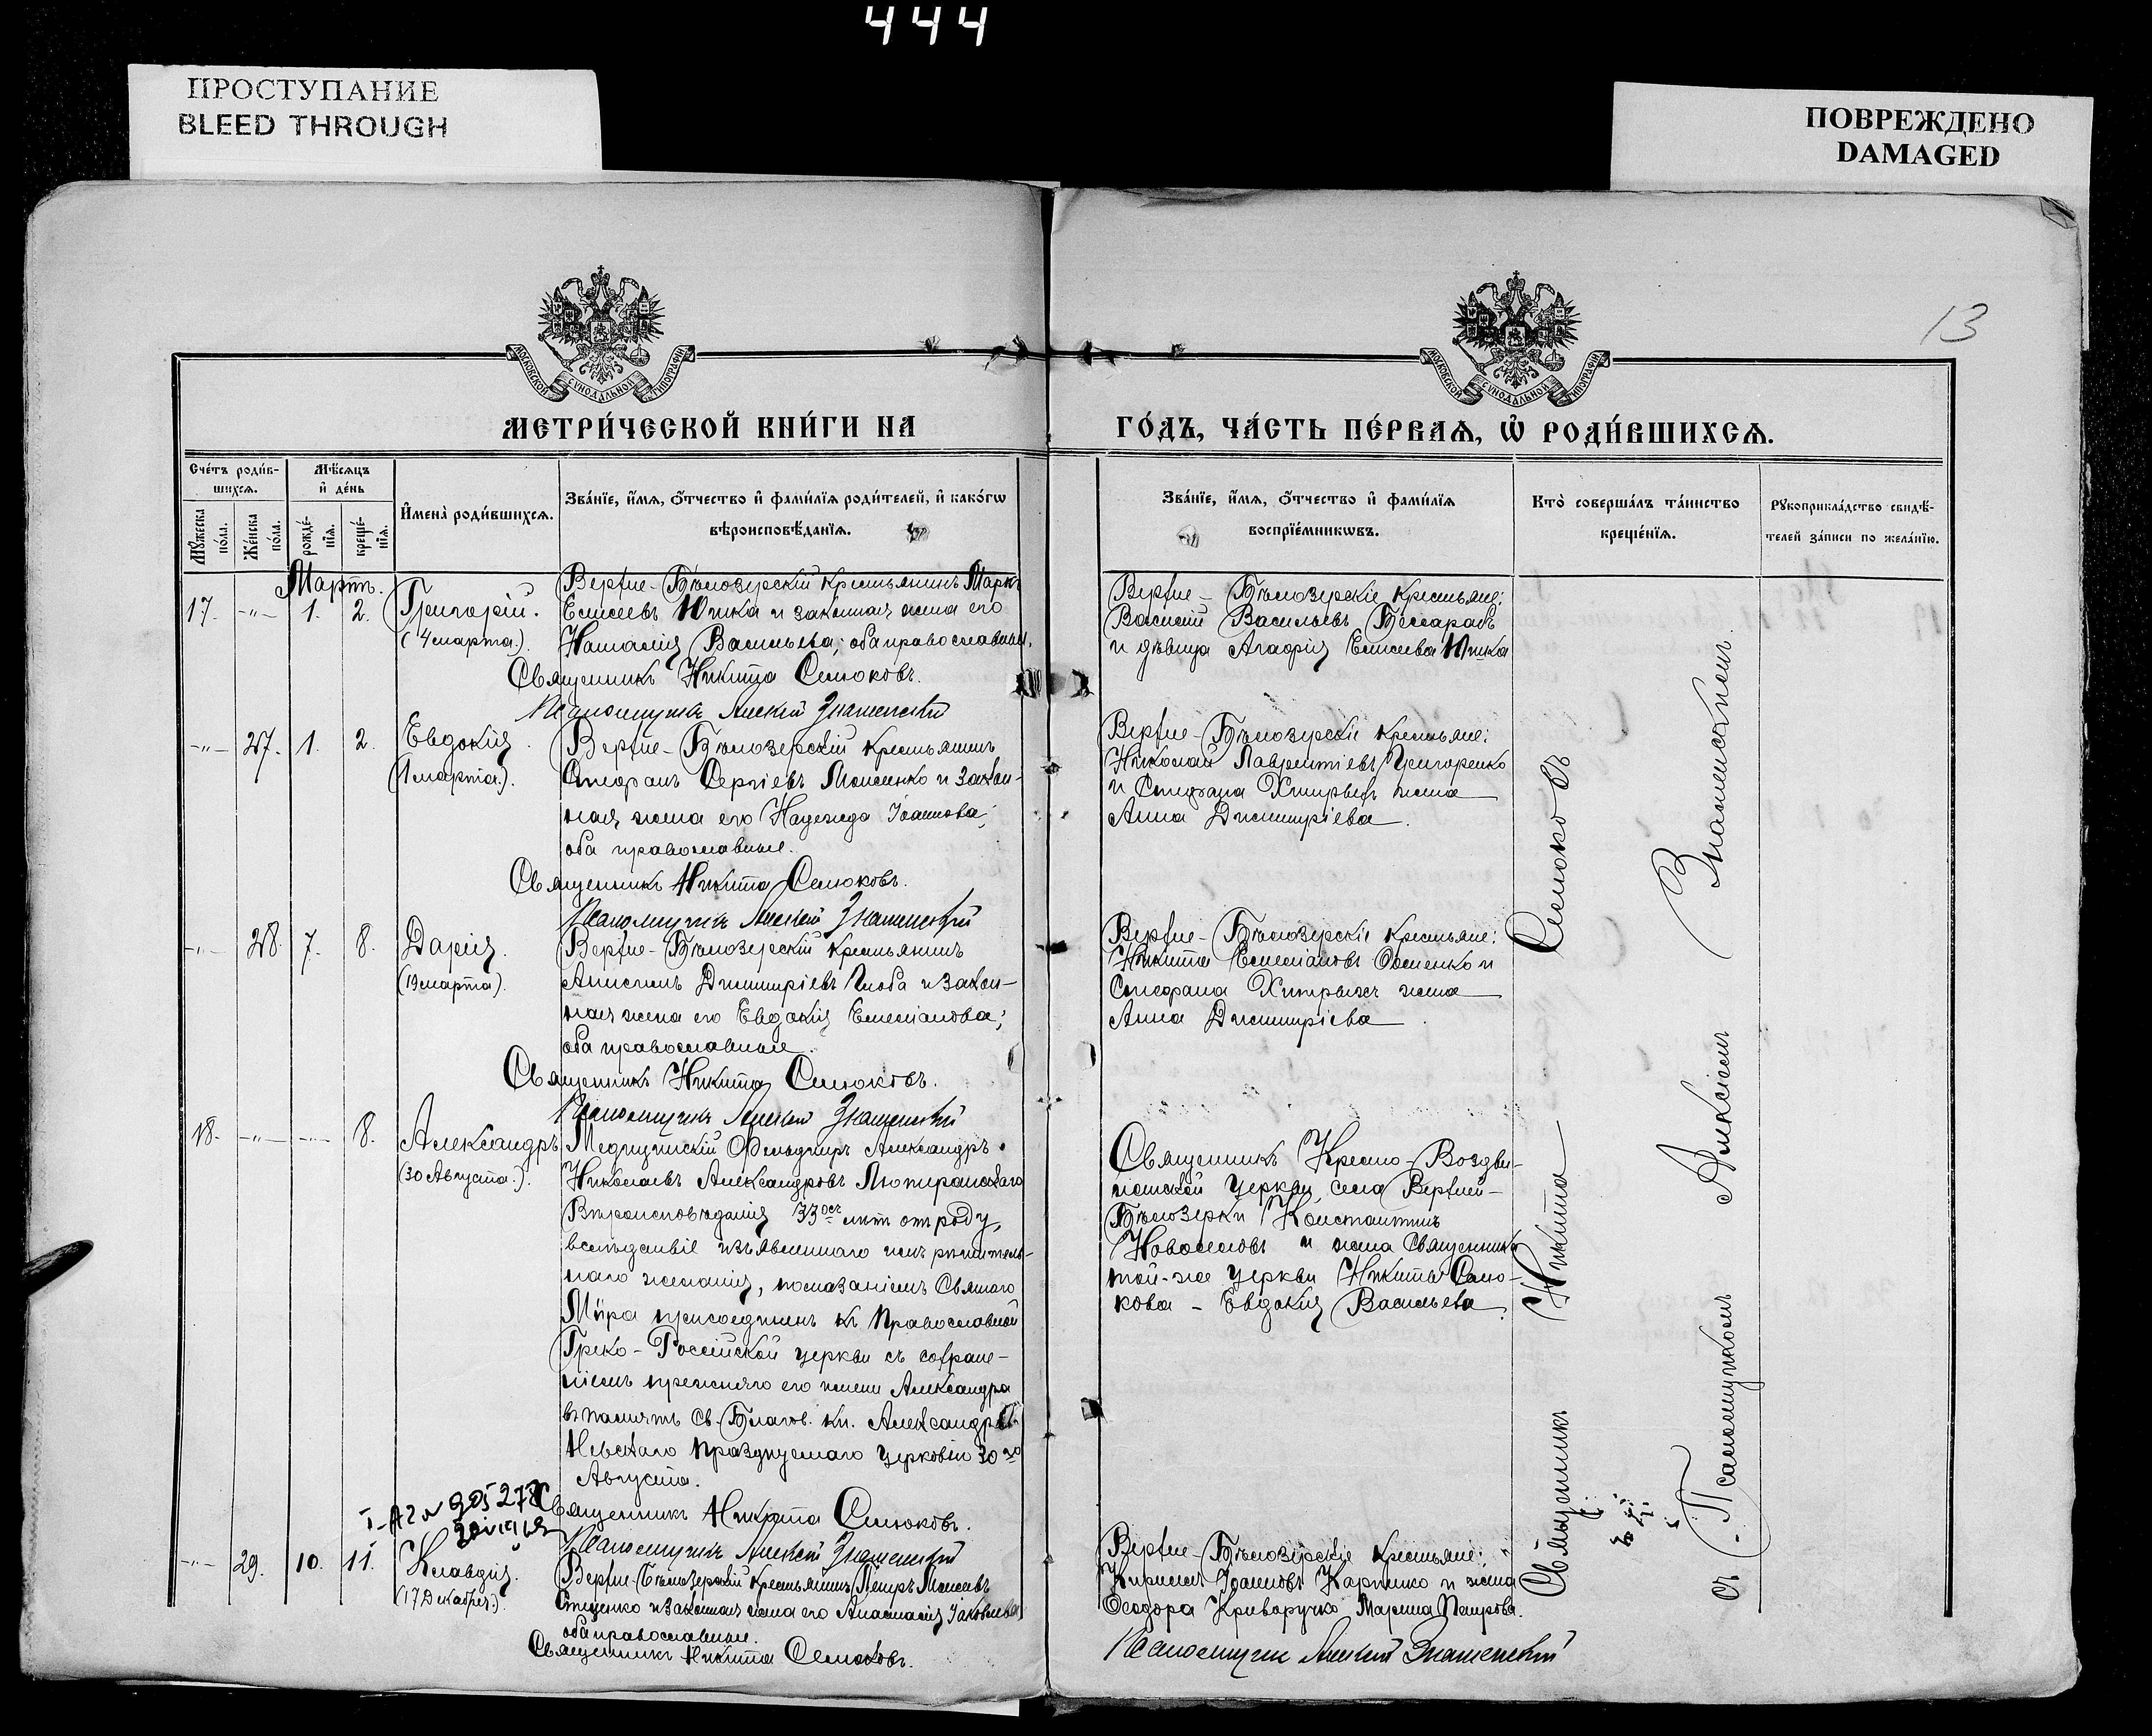 444
ПРОСТУПАНИЕ
BLEED THROUGH
ПОВРЕЖДЕНО
DAMAGED
13
МОСКОВСКОЙ СѴНОДАЛЬНОЙ ТИПОГРАФІИ
МОСКОВСКОЙ СѴНОДАЛЬНОЙ ТИПОГРАФІИ
МЕТРИ́ЧЕСКОЙ КНИ́ГИ НА
ГО́ДЪ, ЧА́СТЬ ПЕ́РВАѦ, Ѡ҆ РОДИ́ВШИХСѦ.
Сче́тъ роди́в-
шихсѧ.
Мѣ́сѧцъ
и҆ де́нь
Мꙋ́жеска
по́ла.
Же́нска
по́ла.
рожде́-
нїѧ.
креще́-
нїѧ.
И҆мена̀ роди́вшихсѧ.
Зва́нїе, и҆́мѧ, ѻ҆́тчество и҆ фами́лїѧ роди́телей, и҆ како́гѡ
вѣроисповѣ́данїѧ.
Зва́нїе, и҆́мѧ, ѻ҆́тчество и҆ фами́лїѧ
воспрїе́мникѡвъ.
Кто̀ соверша́лъ та́инство
креще́нїѧ.
Рꙋкоприкла́дство свидѣ́-
телей за́писи по жела́нїю.
Мартъ.
17. -"- 1. 2. Григорій.
(4 марта.).
Верхне-Бѣлозерскій крестьянинъ Маркъ
Елисеевъ Юшка и законная жена его
Наталія Васильева; оба православные.
Священникъ Никита Семюковъ.
Псаломщикъ Алексій Знаменскій
Верхне-Бѣлозерскіе крестьяне:
Василій Васильевъ Бессарабъ
и дѣвица Агафія Елисеева Юшка
-"- 27. 1. 2. Евдокія.
(1 марта.).
Верхне-Бѣлозерскій крестьянинъ
Стефанъ Сергіевъ Моисенко и закон-
ная жена его Надежда Іоаннова;
оба православные.
Священникъ Никита Семюковъ.
Псаломщикъ Алексій Знаменскій
Верхне-Бѣлозерскіе крестьяне:
Николай Лаврентіевъ Григоренко
и Стефана Хитрыхъ жена
Анна Димитріева.
-"- 28 7. 8. Дарія.
(19 марта).
Верхне-Бѣлозерскій крестьянинъ
Димитріевъ и закон-
ная жена его Евдокія Емеліанова;
оба православные.
Священникъ Никита Семюковъ.
Псаломщикъ Алексій Знаменскій
Верхне-Бѣлозерскіе крестьяне:
Никита Емеліановъ и
Стефана Хитрыхъ жена
Анна Димитріева.
18. -"- -"- 8. Александръ
(30 Августа.).
Медицинскій Фельдшеръ Александръ
Николаевъ Александровъ Лютеранскаго
Вѣроисповѣданія 33 лѣтъ отъ роду,
вслѣдствіе изъявленнаго имъ рѣшитель-
наго желанія, помазаніемъ Святаго
Мѵра присоединенъ къ Православной
Греко-Россійской церкви съ сохране-
ніемъ прежняго его имени Александра
въ память Св. Благов. Кн. Александра
Невскаго празднуемаго церковію 30го
Августа.
Священникъ Никита Семюковъ.
Псаломщикъ Алексій Знаменскій
Священникъ Кресто-Воздви-
женской церкви села Верхней-
Бѣлозерки Константинъ
Новоселовъ и жена Священника
той-же церкви Никиты Семю-
кова - Евдокія Васильева.
-"- 29. 10. 11. Клавдія.
(17 Декабря.).
Верхне-Бѣлозерскій крестьянинъ Петръ Моисеевъ
Стеценко и законная жена его Анастасія Іаковлева
оба православные.
Священникъ Никита Семюковъ.
Верхне-Бѣлозерскіе крестьяне:
Кириллъ Іоанновъ Карпенко и жена
Ѳеодора Криворучко Марина Петрова.
Псаломщикъ Алексій Знаменскій
Священникъ Никита Семюковъ
съ Псаломщикомъ Алексіемъ Знаменскимъ.